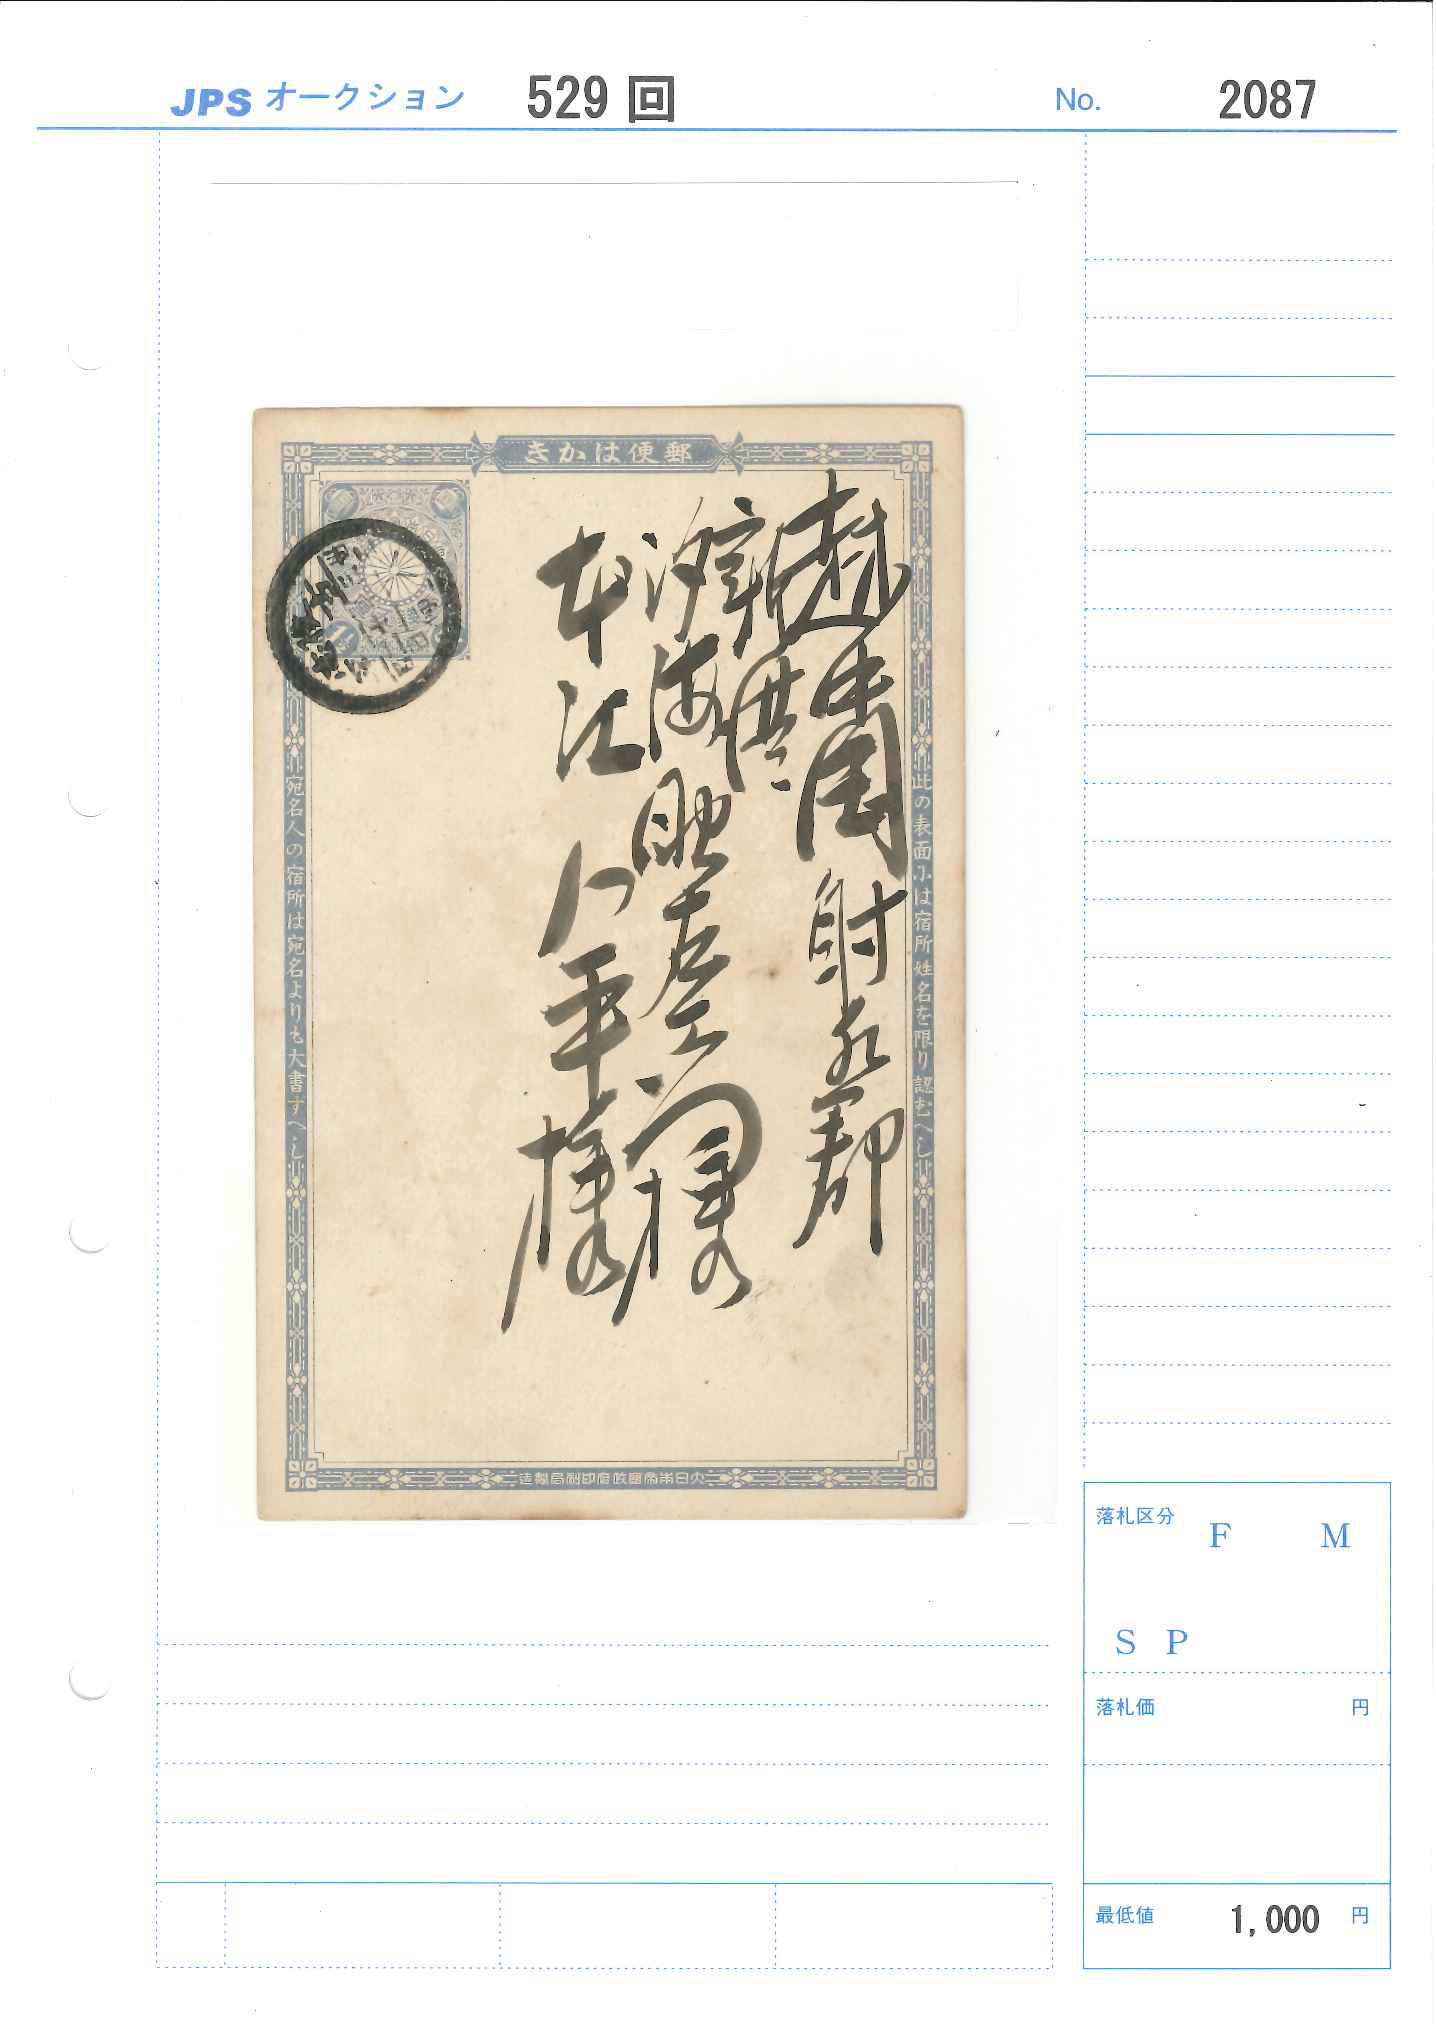 JPS オークション 529 回 No. 2087
郵便はかき
此の表面には宿所姓名を限り認むへし
越中国射水郡
新湊
汐海 左
本江 八平様
宛名人の宿所は宛名よりも大書すへし
大日本帝國政府印刷局製造
落札区分
F M
S P
落札価 円
最低値 1,000 円